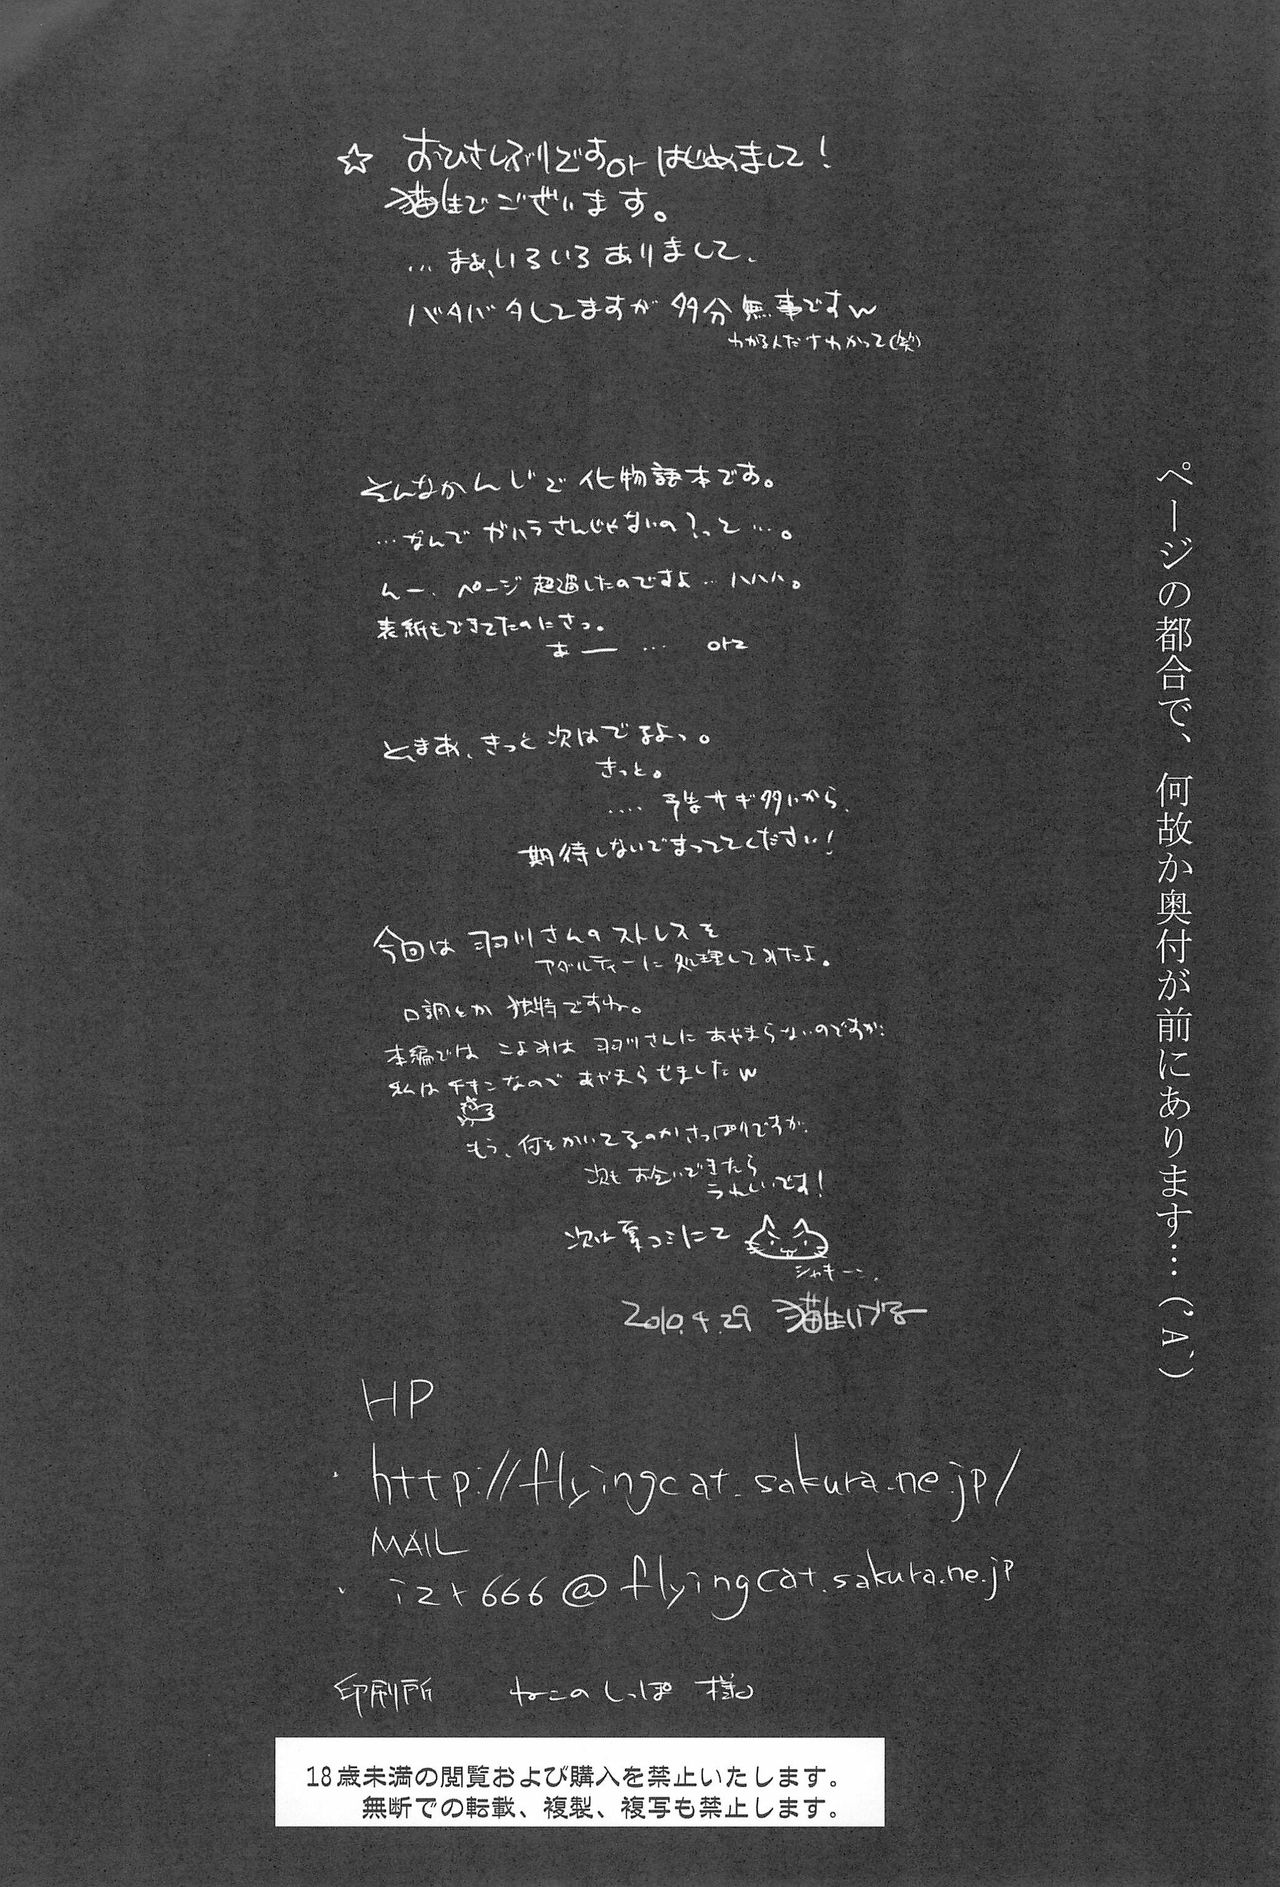 ページの都合で、何故か奥付が前にあります…(’A`)
☆ おひさしぶりですorはじめまして！
猫生でございます。
…まぁ、いろいろありまして、
バタバタしてますが多分無事ですw
わかる人だけわかって(笑)
そんなかんじで化物語本です。
…なんでガハラさんじゃないの？って…。
んー、ページ超過したのですよ…ハハハ。
表紙もできてたのにさっ。
あー … orz
と、まあ、きっと次はでるよっ。
きっと。
‥‥予告サギ多いから、
期待しないでまっててください！
今回は羽川さんのストレスを
アダルティーに処理してみたよ。
口調とか独特ですね。
本編ではこよみは羽川さんにあやまらないのですが、
私はチキンなのであやまらせましたw
もう、何をかいてるのかさっぱりですが、
次もお会いできたら
うれしいです！
次は夏コミにて
シャキーン。
2010.4.29 猫生いづる
HP
・http://flyingcat.sakura.ne.jp/
MAIL
・izr666@flyingcat.sakura.ne.jp
印刷所 ねこのしっぽ 様
18歳未満の閲覧および購入を禁止いたします。
無断での転載、複製、複写も禁止します。